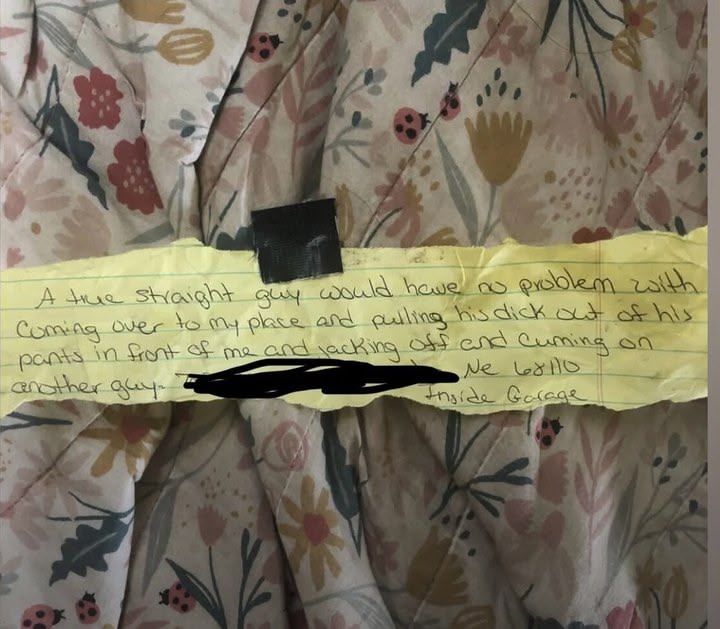 A true straight guy would have no problem with
Coming over to my place and pulling his dick out of his
pants in front of me and jacking off and Cuming on
another guy. Ne 68110
Inside Garage